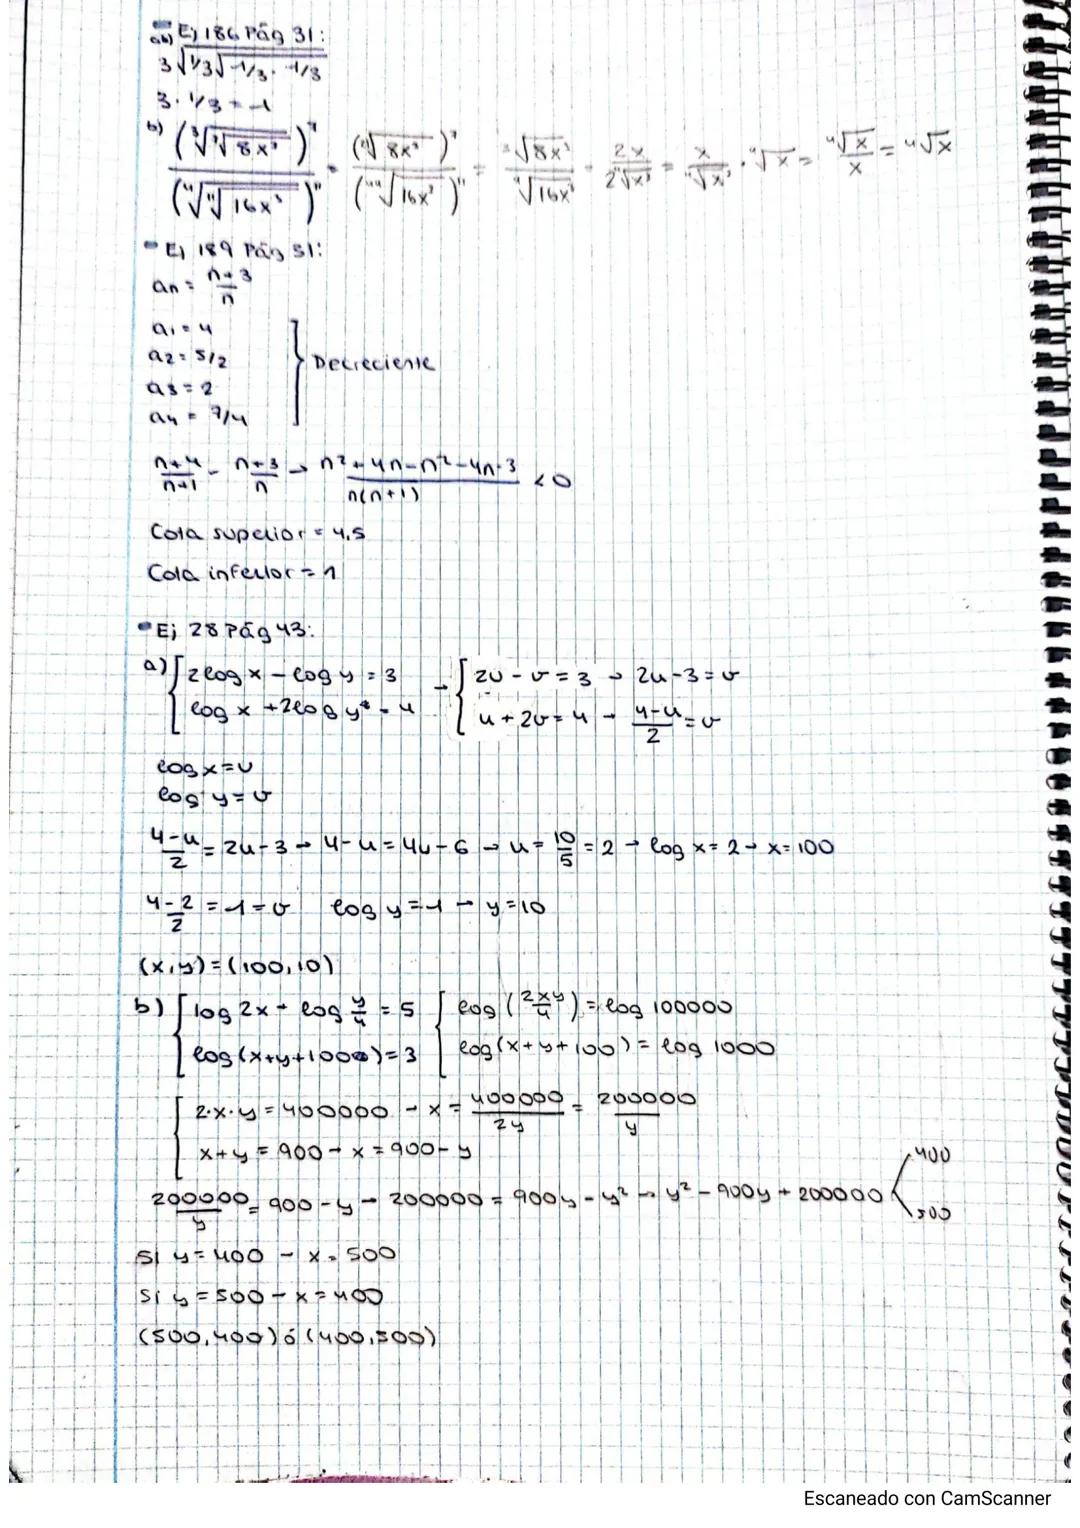 Ej 186 Pág 31:
a)
3√1/3√-1/3 · -1/3
3 · 1/3 = -1
b) (³√⁷√8x³)⁷ / (⁴√¹¹√16x³)¹¹ = (²¹√8x³)⁷ / (⁴⁴√16x³)¹¹ = ³√8x³ / ⁴√16x³ = 2x / 2⁴√x³ = x / ⁴√x³ · ⁴√x = ⁴√x / x = ⁴√x
Ej 189 Pág 31:
an = n+3 / n
a1 = 4
a2 = 5/2
a3 = 2
a4 = 7/4
Decreciente
n+4 / n+1 - n+3 / n → n² + 4n - n² - 4n - 3 / n(n+1) < 0
Cota superior = 4,5
Cota inferior = 1
Ej 28 Pág 43:
a) { 2 log x - log y = 3 → { 2u - v = 3 → 2u - 3 = v
log x + 2 log y = 4 u + 2v = 4 → 4-u / 2 = v
log x = u
log y = v
4-u / 2 = 2u - 3 → 4 - u = 4u - 6 → u = 10/5 = 2 → log x = 2 → x = 100
4-2 / 2 = 1 = v log y = 1 → y = 10
(x,y) = (100,10)
b) { log 2x + log y/4 = 5 { log (2xy/4) = log 100000
log (x+y+100) = 3 log (x+y+100) = log 1000
{ 2·x·y = 400000 → x = 400000 / 2y = 200000 / y
x+y = 900 → x = 900 - y
200000 / y = 900 - y → 200000 = 900y - y² → y² - 900y + 200000 < 400
500
Si y = 400 → x = 500
Si y = 500 → x = 400
(500,400) ó (400,500)
Escaneado con CamScanner